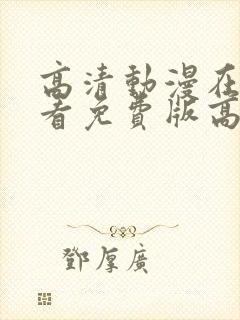 高清動漫在
看免費版高
鄧厚廣